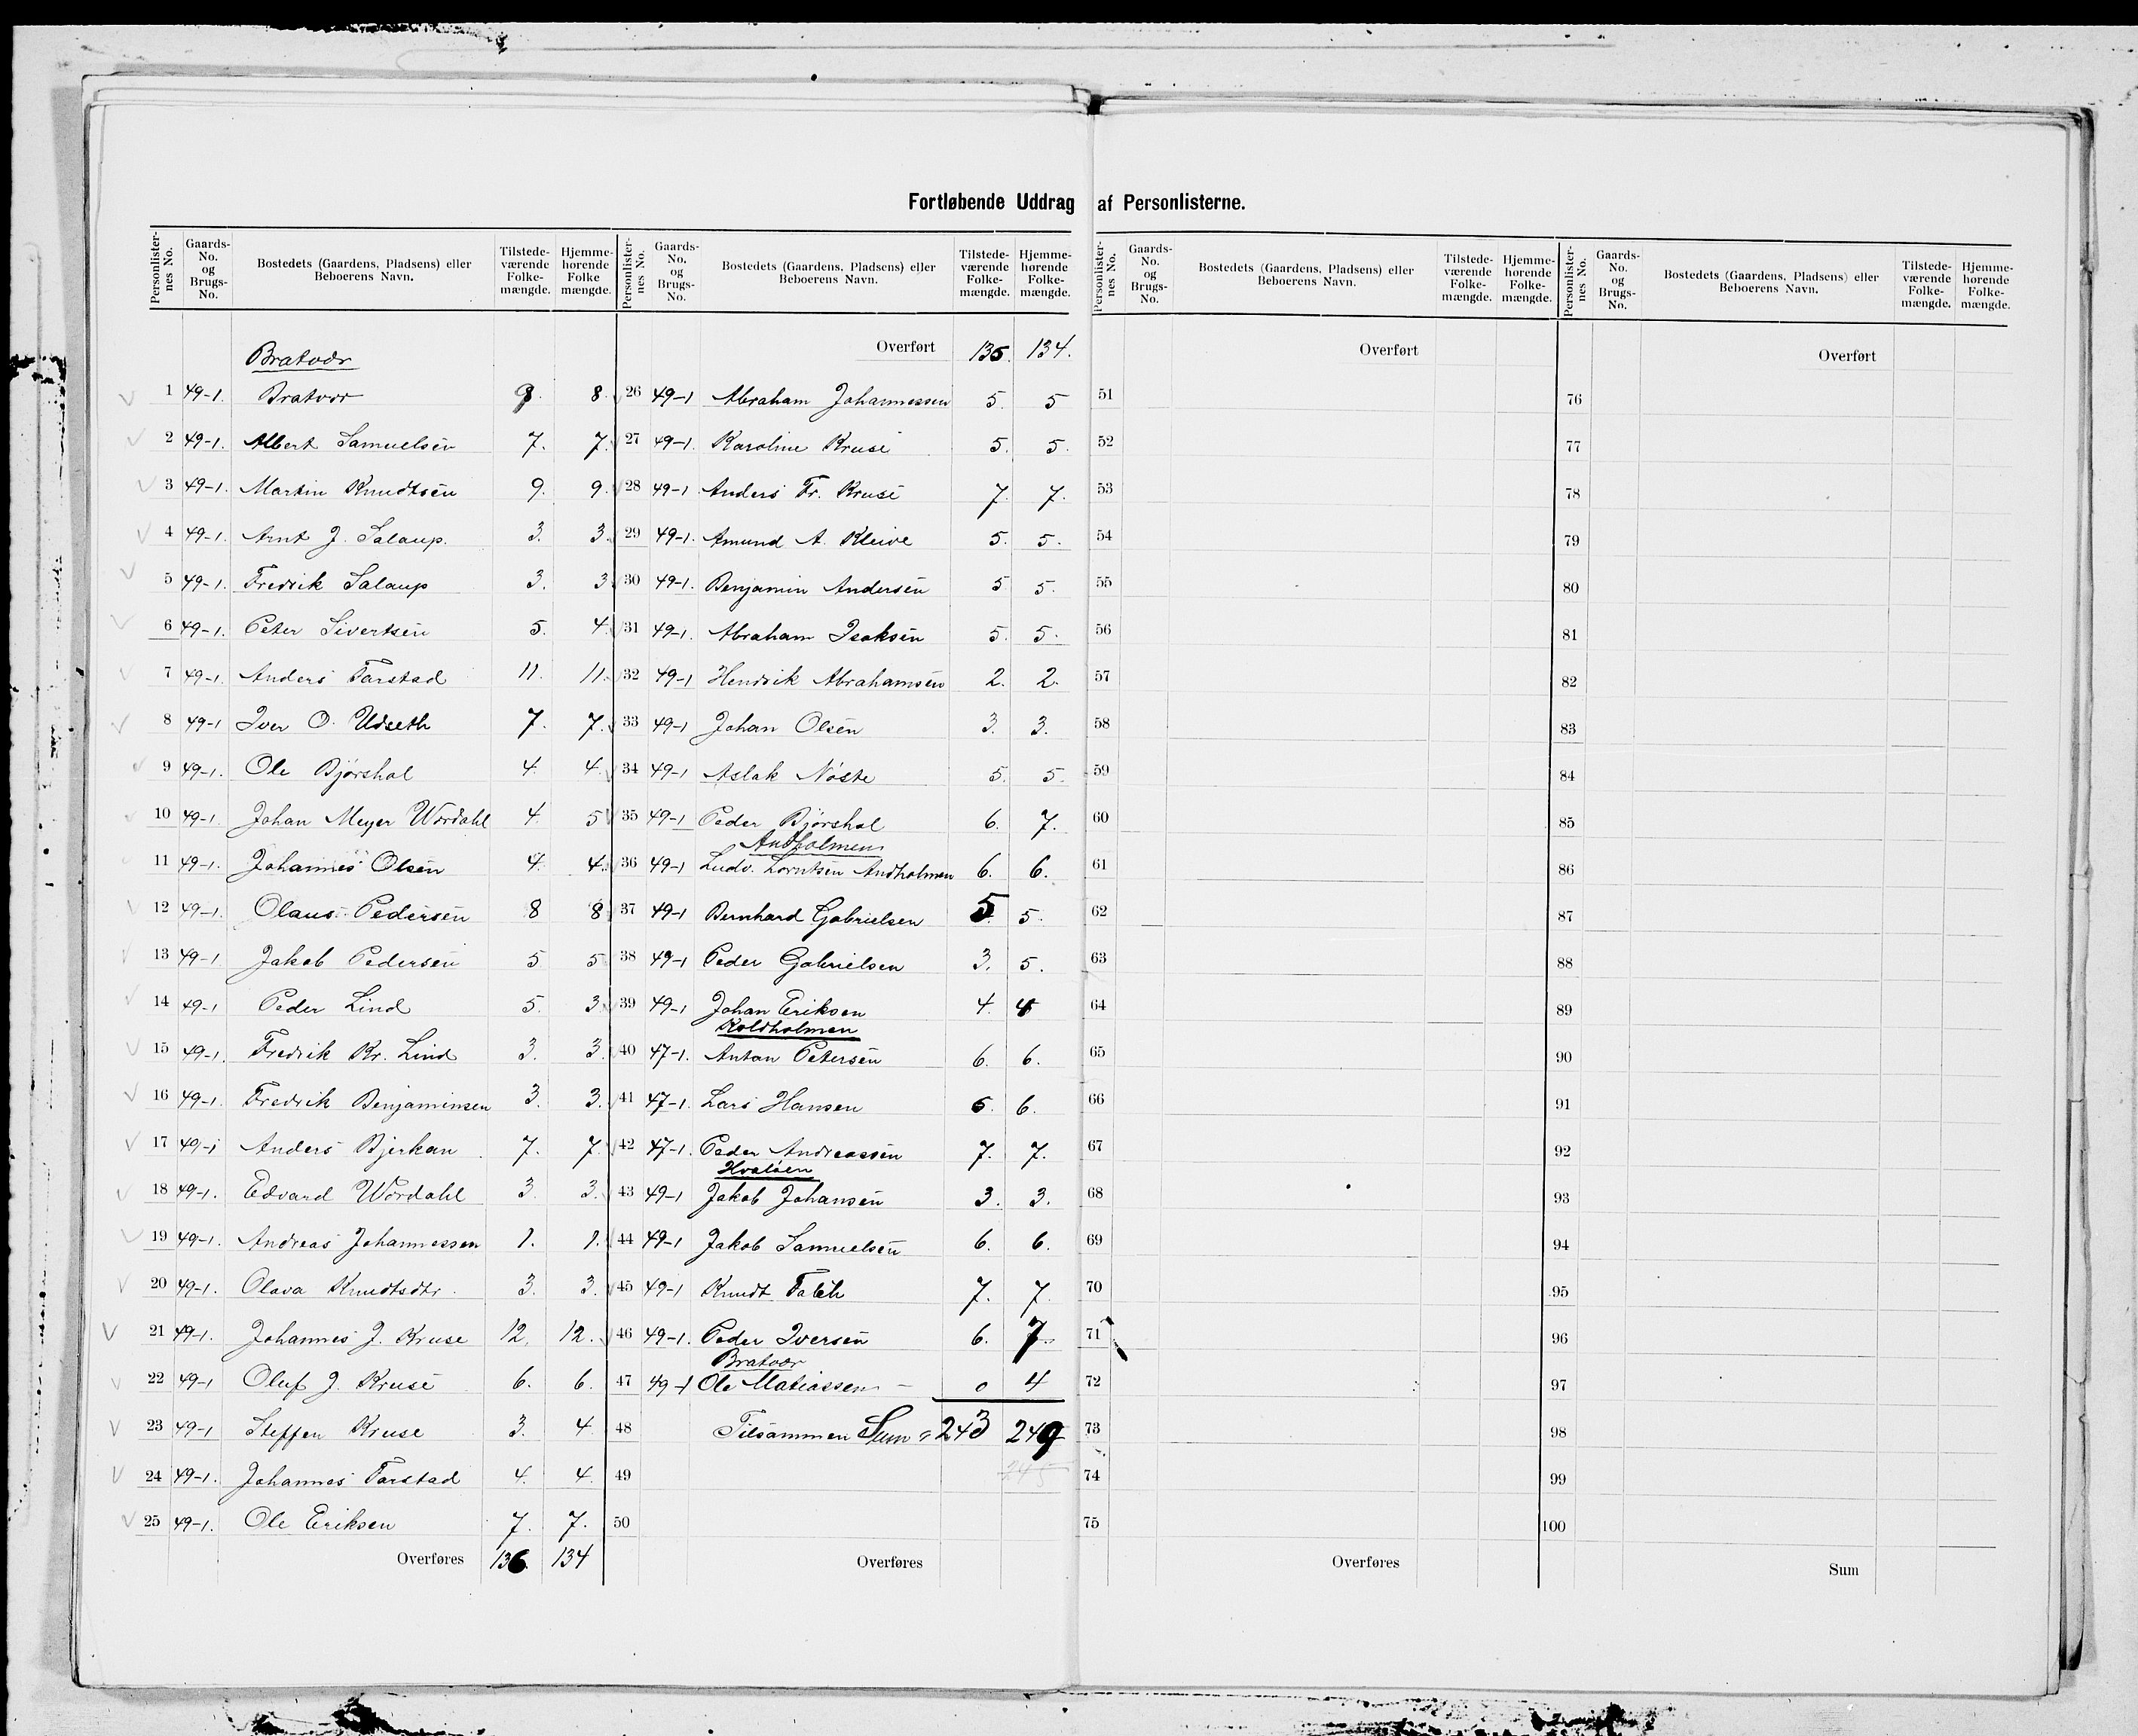 Fortløbende Uddrag af Personlisterne.
Personlister-nes No. Gaards-No. og Brugs-No. Bostedets (Gaardens, Pladsens) eller Beboerens Navn. Tilstede-værende Folke-mængde. Hjemme-hørende Folke mængde.
Bratvær
1 49-1. Bratvær 9. 8.
2 49-1. Albert Samuelsen 7. 7.
3 49-1. Martin Knudtsen 9. 9.
4 49-1. Arnt J. Salaup. 3. 3.
5 49-1. Fredrik Salaup 3. 3
6 49-1. Peter Sivertsen 5. 4.
7 49-1. Anders Tarstad 11. 11.
8 49-1 Iver O. Udseth 7. 7.
9 49-1. Ole Bjørshol 4. 4.
10 49-1. Johan Meyer Wordahl 4. 5
11 49-1. Johannes Olsen 4. 4.
12 49-1. Olaus Pedersen 8 8
13 49-1 Jakob Pedersen 5 5
14 49-1 Peder Lind 5. 3.
15 49-1. Fredrik Kr. Lind 3. 3.
16 49-1. Fredrik Benjaminsen 3. 3.
17 49-1 Anders Bjerkan 7. 7.
18 49-1. Edvard Wordahl 3. 3.
19 49-1. Andreas Johannessen 1. 1.
20 49-1. Olava Knudtsdtr. 3. 3.
21 49-1. Johannes J. Kruse 12. 12.
22 49-1 Oluf J. Kruse 6. 6.
23 49-1 Steffen Kruse 3. 4.
24 49-1. Johannes Tarstad 4. 4.
25 49-1. Ole Eriksen 7. 7.
Overføres 136. 134
Personlister-nes No. Gaards-No. og Brugs-No. Bostedets (Gaardens, Pladsens) eller Beboerens Navn. Tilstede-værende Folke-mængde. Hjemme-hørende Folke-mængde.
Overført 135. 134.
26 49-1 Abraham Johannessen 5. 5
27 49-1. Karoline Kruse 5. 5.
28 49-1 Anders Fr. Kruse 7. 7.
29 49-1. Amund A. Kleive 5. 5.
30 49-1. Benjamin Andersen 5 5.
31 49-1. Abraham Isaksen 5. 5.
32 49-1 Hendrik Abrahamsen 2. 2.
33 49-1 Johan Olsen 3. 3.
34 49-1 Aslak Nøste 5. 5.
35 49-1 Peder Bjørshol 6. 7.
Andholmen
36 49-1 Ludv. Lorntsen Andholmen 6. 6.
37 49-1 Bernhard Gabrielsen 5. 5.
38 49-1 Peder Gabrielsen 3. 5.
39 49-1 Johan Eriksen 4. 4
Koldholmen
40 47-1. Anton Petersen 6. 6.
41 47-1. Lars Hansen 6. 6.
42 47-1. Peder Andreassen 7. 7.
Hvaløen
43 49-1 Jakob Johansen 3. 3.
44 49-1 Jakob Samuelsen 6. 6.
45 49-1 Knudt Falch 7. 7.
46 49-1. Peder Iversen 6. 7.
Bratvær
47 49-1 Ole Matiassen – 0 4
48 Tilsammen Sum = 243 249
49 245
50
Overføres
Personlister-nes No. Gaards-No. og Brugs-No. Bostedets (Gaardens, Pladsens) eller Beboerens Navn. Tilstede-værende Folke-mængde. Hjemme-hørende Folke-mængde.
Overført
51
52
53
54
55
56
57
58
59
60
61
62
63
64
65
66
67
68
69
70
71
72
73
74
75
Overføres
Personlister-nes No. Gaards-No. og Brugs-No. Bostedets (Gaardens, Pladsens) eller Beboerens Navn. Tilstede-værende Folke-mængde. Hjemme-hørende Folke-mængde.
Overført
76
77
78
79
80
81
82
83
84
85
86
87
88
89
90
91
92
93
94
95
96
97
98
99
100
Sum